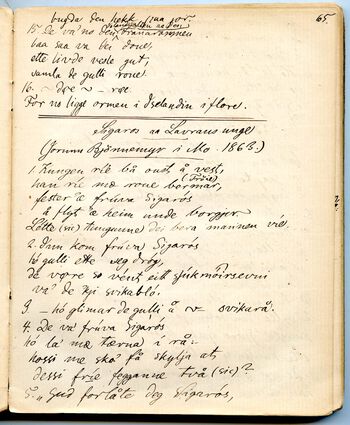 65
bugda den hekk
15 De va no den
baa saa va bei done,
ette livde vesle gut,
samla de gulli rone.
16. ~ dæ ~ - ræ.
For no ligge ormen i Iselandin i flore.
Sigaros aa Lavrans unge
(Jorunn Bjønnemyr i Mo. 1863.)
1. Kungen rie bå oust å vest,
han rie mæ rone
fetter æ frúva Sigarós
å flyt æ heim unde borgjir
Lótte (sic) tungunne dei bera mannen vié.
2. Dæn kom frúva Sigarós
hó gulli ette seg dróg,
de være so vent eitt
va' de kji svikabló.
3 — hó glimar de gulli å svikará.
4. De va frúva Sigarós
hó la' mæ tærna i rå:
hossi me sko' få skylja at
dessi frie två (sic)?
5. „Gud forlåte deg Sigarós,